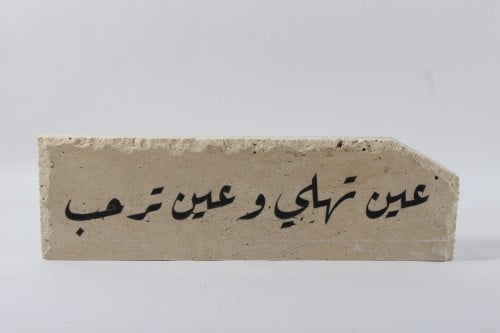 عين تهلي و عين ترحب